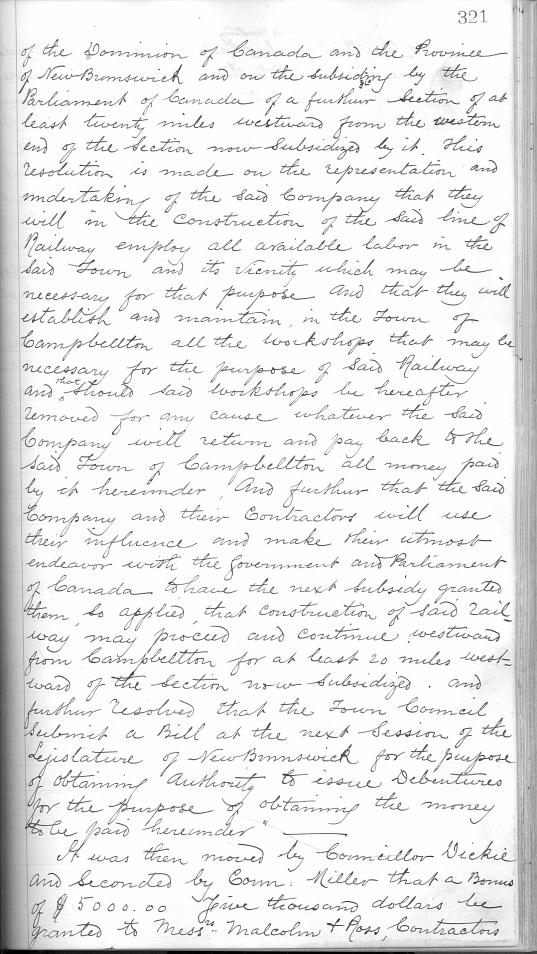 321
of the Dominion of Canada and the Province
of New Brunswick and on the subsiding by the
Parliament of Canada of a further Section of at
least twenty miles westward from the western
end of the Section now Subsidized by it. This
resolution is made on the representation and
undertaking of the Said Company that they
will in the construction of the Said line of
Railway employ all available labor in the
said Town and its Vicinity which may be
necessary for that purpose And that they will
establish and maintain, in the Town of
Campbellton all the workshops that may be
necessary for the purpose of Said Railway
and that Should said workshops be hereafter
removed for any cause whatever the Said
Company will return and pay back to the
said Town of Campbellton all money paid
by it hereunder, And further that the Said
Company and their Contractors will use
their influence and make their utmost
endeavor with the Government and Parliament
of Canada to have the next subsidy granted
them, So applied, that construction of Said rail=
way may proceed and continue westward
from Campbellton for at least 20 miles west=
ward of the Section now Subsidized. and
further resolved that the Town Council
Submit a Bill at the next Session of the
Legislature of New Brunswick for the purpose
of obtaining Authority to issue Debentures
for the purpose of obtaining the money
to be paid hereunder"
It was then moved by Councillor Dickie
and Seconded by Coun: Miller that a Bonus
of $5000.00 Five thousand dollars be
granted to Messrs. Malcolm & Ross, Contractors